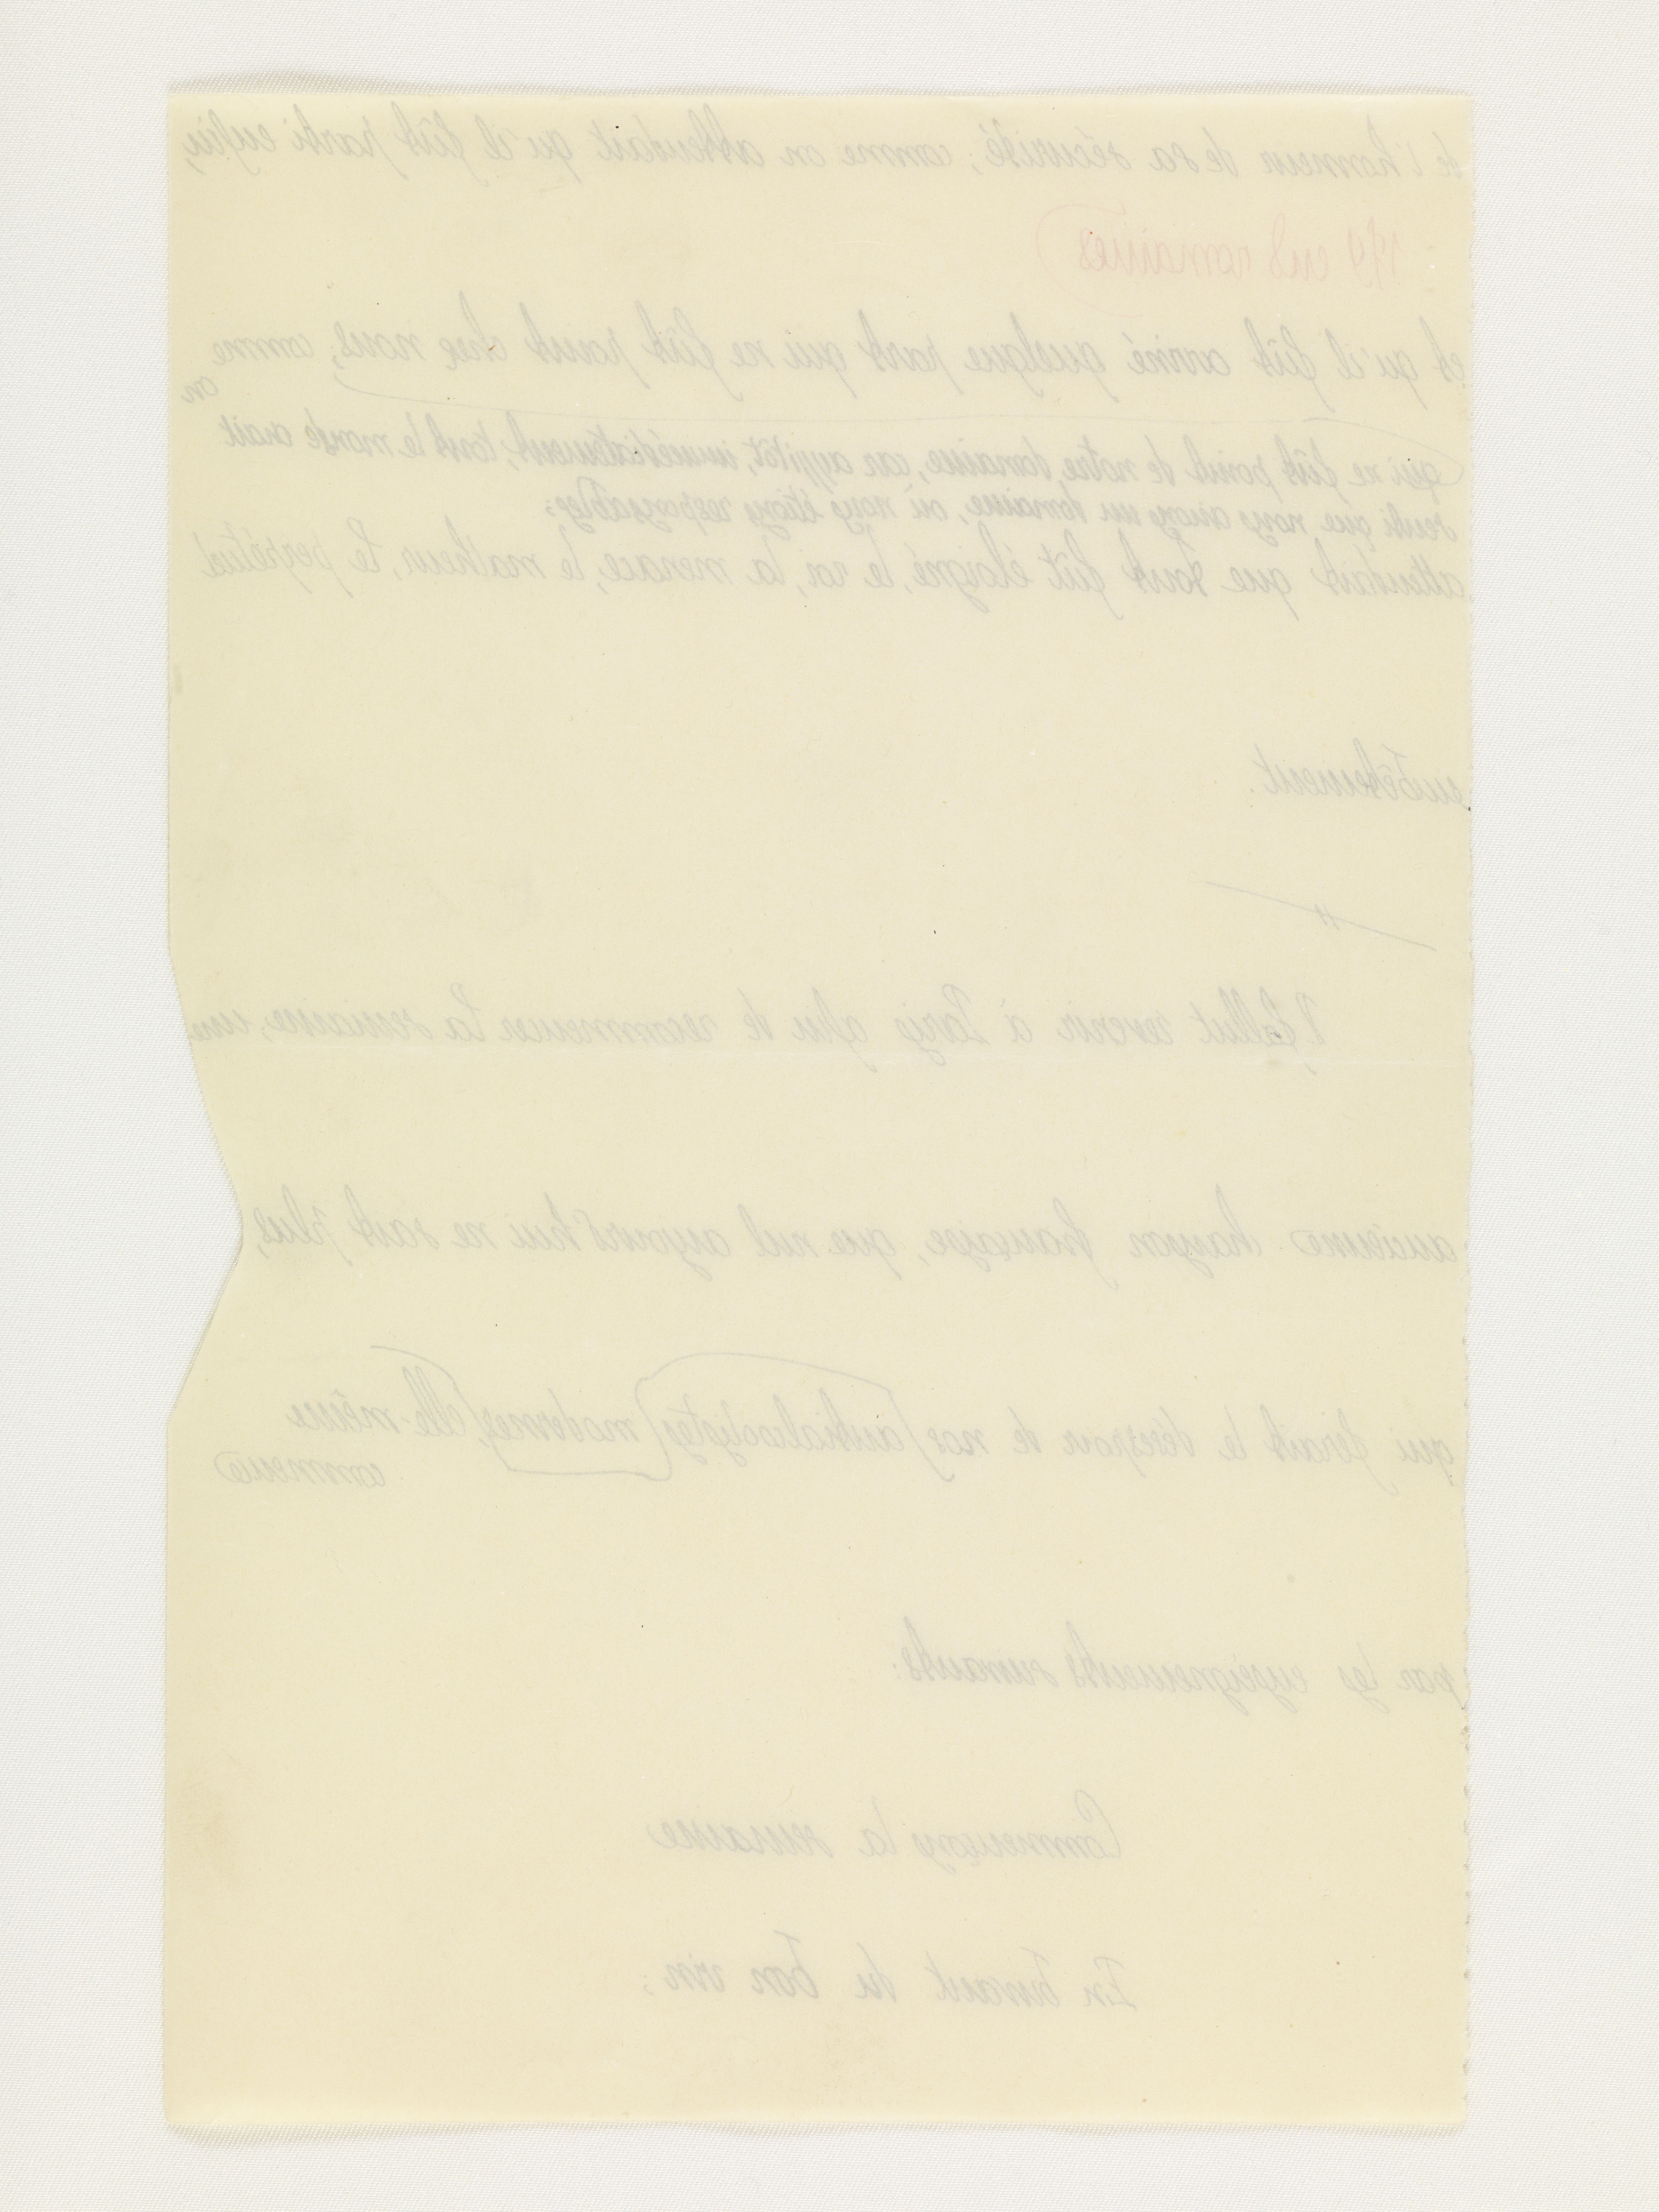 de l'honneur de sa sécurité; comme on attendait qu'il fût parti enfin,
romaines
et qu'il fût arrivé quelque part qui ne fût point chez nous; comme
on
qui ne fût point de notre domaine, car aussitôt, immédiatement, tout le monde avait
senti que nous avions un domaine, où nous étions responsables;
attendait que tout fût éloigné, le roi, la menace, le malheur, le perpétuel
embêtement.
Il fallut revenir à Paris afin de recommencer la semaine, une
ancienne chanson française, que nul aujourd'hui ne sait plus,
qui ferait le désespoir de nos antialcoolistes modernes, elle-même
commence
par les enseignements suivants:
Commençons la semaine
En buvant du bon vin;